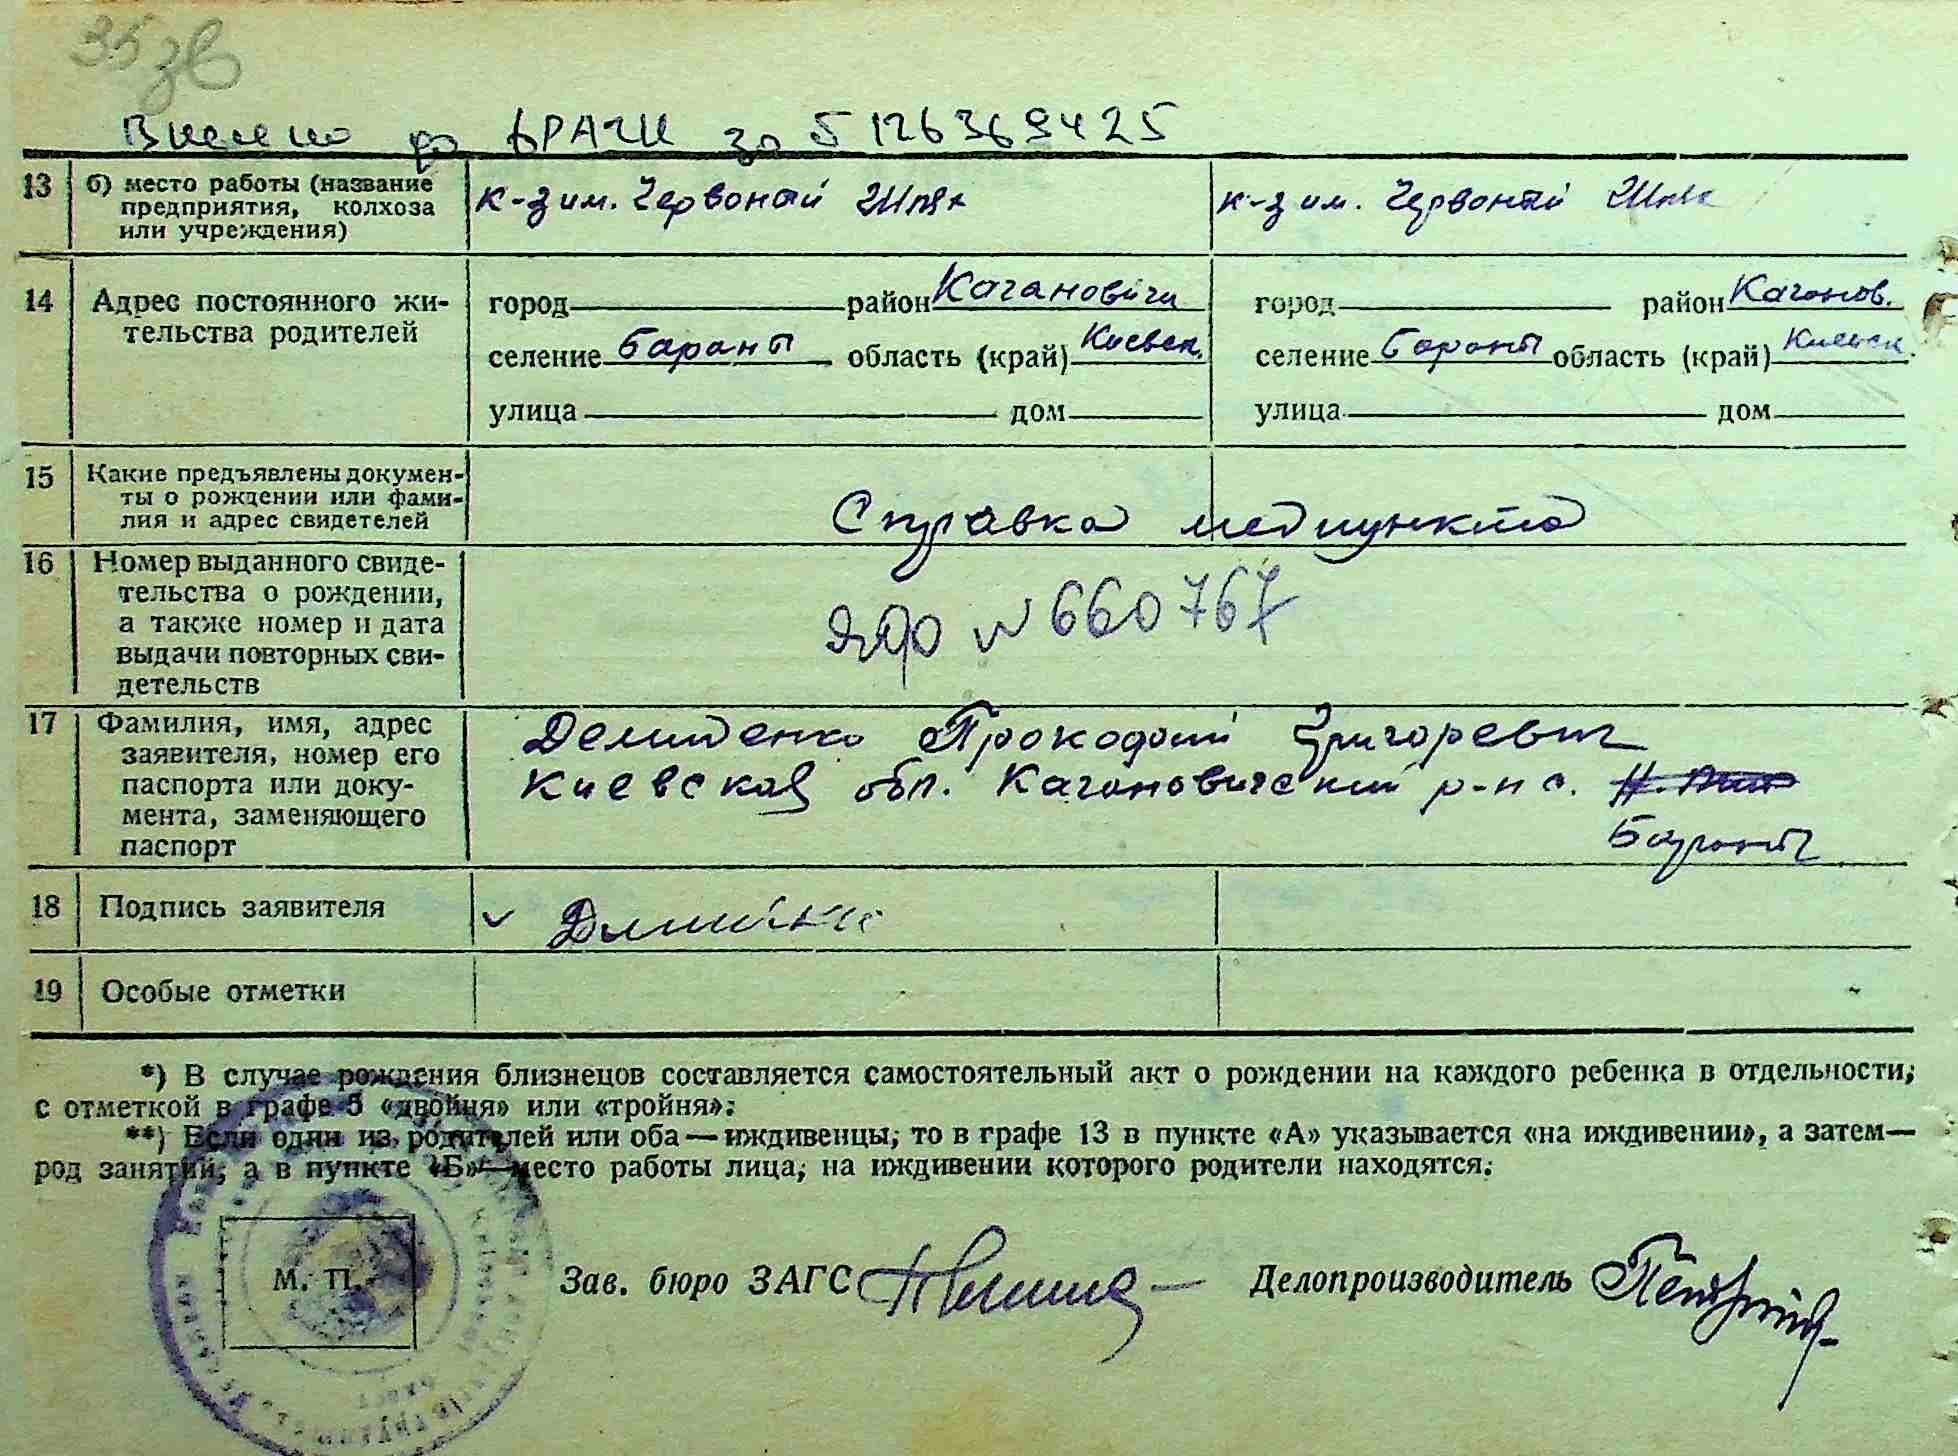 35 зв
Внесено до ДРАЦС за 5126369425
13 б) место работы (название
предприятия, колхоза
или учреждения)
к-з им. Червоный Шлях к-з им. Червоный Шлях
14 Адрес постоянного жи-
тельства родителей
город район Кагановичи город район Каганов.
селение Бараны область (край) Киевск. селение Бараны область (край) Киевск.
улица дом улица дом
15 Какие предъявлены докумен-
ты о рождении или фами-
лия и адрес свидетелей
Справка медпункта
16 Номер выданного свиде-
тельства о рождении,
а также номер и дата
выдачи повторных сви-
детельств
№ 660767
17 Фамилия, имя, адрес
заявителя, номер его
паспорта или доку-
мента, заменяющего
паспорт
Демиденко Прокофий Григоревич
Киевская обл. Кагановичский р-н с.
Бараны
18 Подпись заявителя
19 Особые отметки
*) В случае рождения близнецов составляется самостоятельный акт о рождении на каждого ребенка в отдельности,
с отметкой в графе 5 «двойня» или «тройня».
**) Если один из родителей или оба — иждивенцы, то в графе 13 в пункте «А» указывается «на иждивении», а затем —
род занятий, а в пункте «Б» — место работы лица, на иждивении которого родители находятся.
М. П. Зав. бюро ЗАГС Делопроизводитель